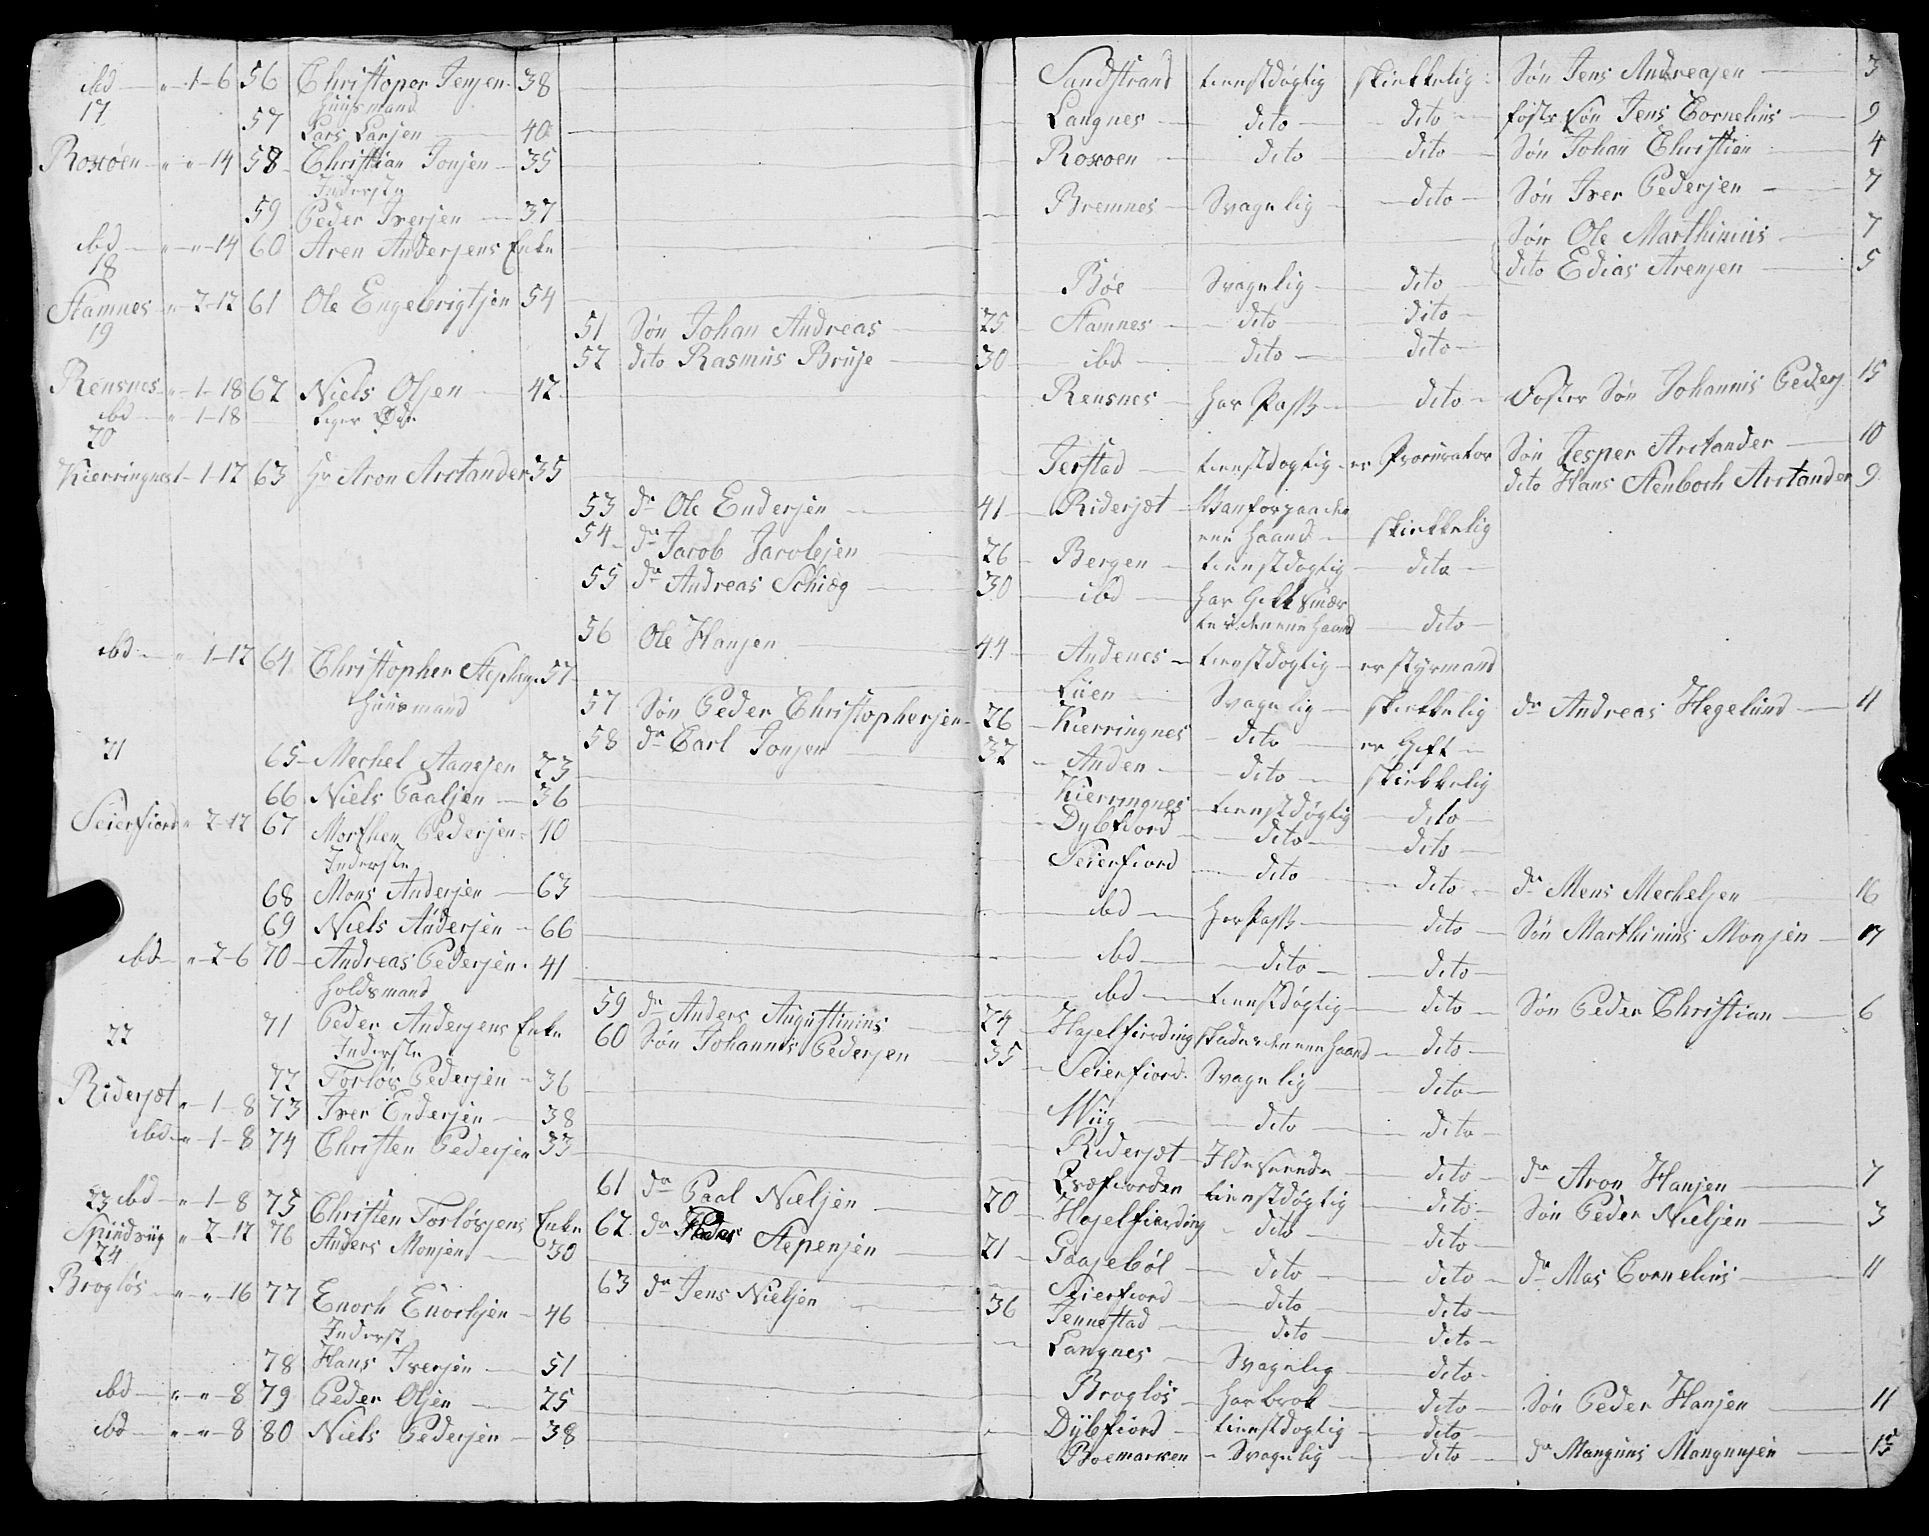 ibd — " 1-6 56 Christoper Jensen 38 — Sandstrand tienstdøgtig skickelig Søn Jens Andreasen — 3
17 Huusmand
57 Lars Larsen — 40 — Langnes dito dito foster søn Jens Cornelius — 9
Roxøen " " 14 58 Christian Jonsen 35 — Roxoen dito dito Søn Johan Christian 4
Inderste
59 Peder Iversen — 37 — Bremnes Svagelig dito Søn Iver Pedersen 7
ibd " " 14 60 Aren Andersens Enke — Søn Ole Marthinius 7
18 dito Edias Arensen 5
Stamnes " 2-12 61 Ole Engebrigtsen 54 — Bøe Svagelig dito
19 51 Søn Johan Andreas 25 Stamnes dito dito
52 dito Rasmus Bruse 30 ibd dito dito
Rensnes " 1-18 62 Niels Olsen 42 — Rensnes har Pass dito Foster Søn Johannis Peders 15
ibd " 1-18 liger Øde
20
Kierringnes 1-12 63 Hr Aron Arctander 35 — Jerstad tienstdogtig er Procurator Søn Jesper Arctander 10
dito Hans Stenboch Arctander 9
53 dr Ole Endersen 41 Ridersæt Vanfør paa den
een Haand skickelig
54 dr Jacob Jacobsen 26 Bergen tienstdogtig dito
55 dr Andreas Schiøg 30 ibd har Gigt smær
ter i den ene Haand dito
56 Ole Hansen 44 Andenes tienstdogtig er styrmand
ibd " 1-12 64 Christopher Stephens 57 — Lüen Svagelig skickelig dr Andreas Hegelund 11
Huusmand
57 Søn Peder Christophersen 26 Kierringnes dito er Gift
58 dr Carl Jonsen 32 Anden dito skickelig
21 65 Mechel Hansen 23 — Kierringnes tienstdøgtig dito
66 Niels Paalsen 36 — Dybfiord dito dito
Seierfiord " 2-12 67 Morthen Pedersen 40 — Seierfiord dito dito dr Mens Mechelsen 16
Inderste
68 Mons Andersen 63 — ibd har Pass dito Søn Marthinius Monsen 17
69 Niels Andersen 66 — ibd dito dito
ibd " 2-6 70 Andreas Pedersen 41 — ibd tienstdøgtig dito Søn Peder Christian 6
Holdsmand
59 dr Anders Augustinius 24 Hasselfiording skade i den ene Haand dito
22 71 Peder Andersens Enke 60 Søn Johannes Pedersen 35 Seierfiord Svagelig dito
Inderste
72 Torløs Pedersen 36 — Wiig dito dito
Ridersæt " 1-8 73 Iver Endersen 38 — Ridersæt Ildeseende dito dr Aron Hansen 7
ibd " 1-8 74 Christen Pedersen 33 — Qvæfiorden tienstdøgtig dito Søn Peder Nielsen 3
61 dr Paal Nielsen 20 Hasselfiording dito dito
23 ibd " 1-8 75 Christen Torløsens Enke 62 dr Peder Stepensen 21 Gaasebøl dito dito dr Mas Cornelius 11
Spindviig " 2-12 76 Anders Monsen 30 — Seierfiord dito dito
24 63 dr Jens Nielsen 36 Jennestad dito dito
Brogløs " " 16 77 Enoch Enochsen 46 — Langnes Svagelig dito
Inderst
78 Hans Iversen 51 — Brogløs har brok dito Søn Peder Hansen 11
ibd " " 8 79 Peder Olsen 25 — Dybfiord tienstdogtig dito
ibd " " 8 80 Niels Pedersen 38 — Boemarken Svagelig dito dr Mangnus Mangnusen 15